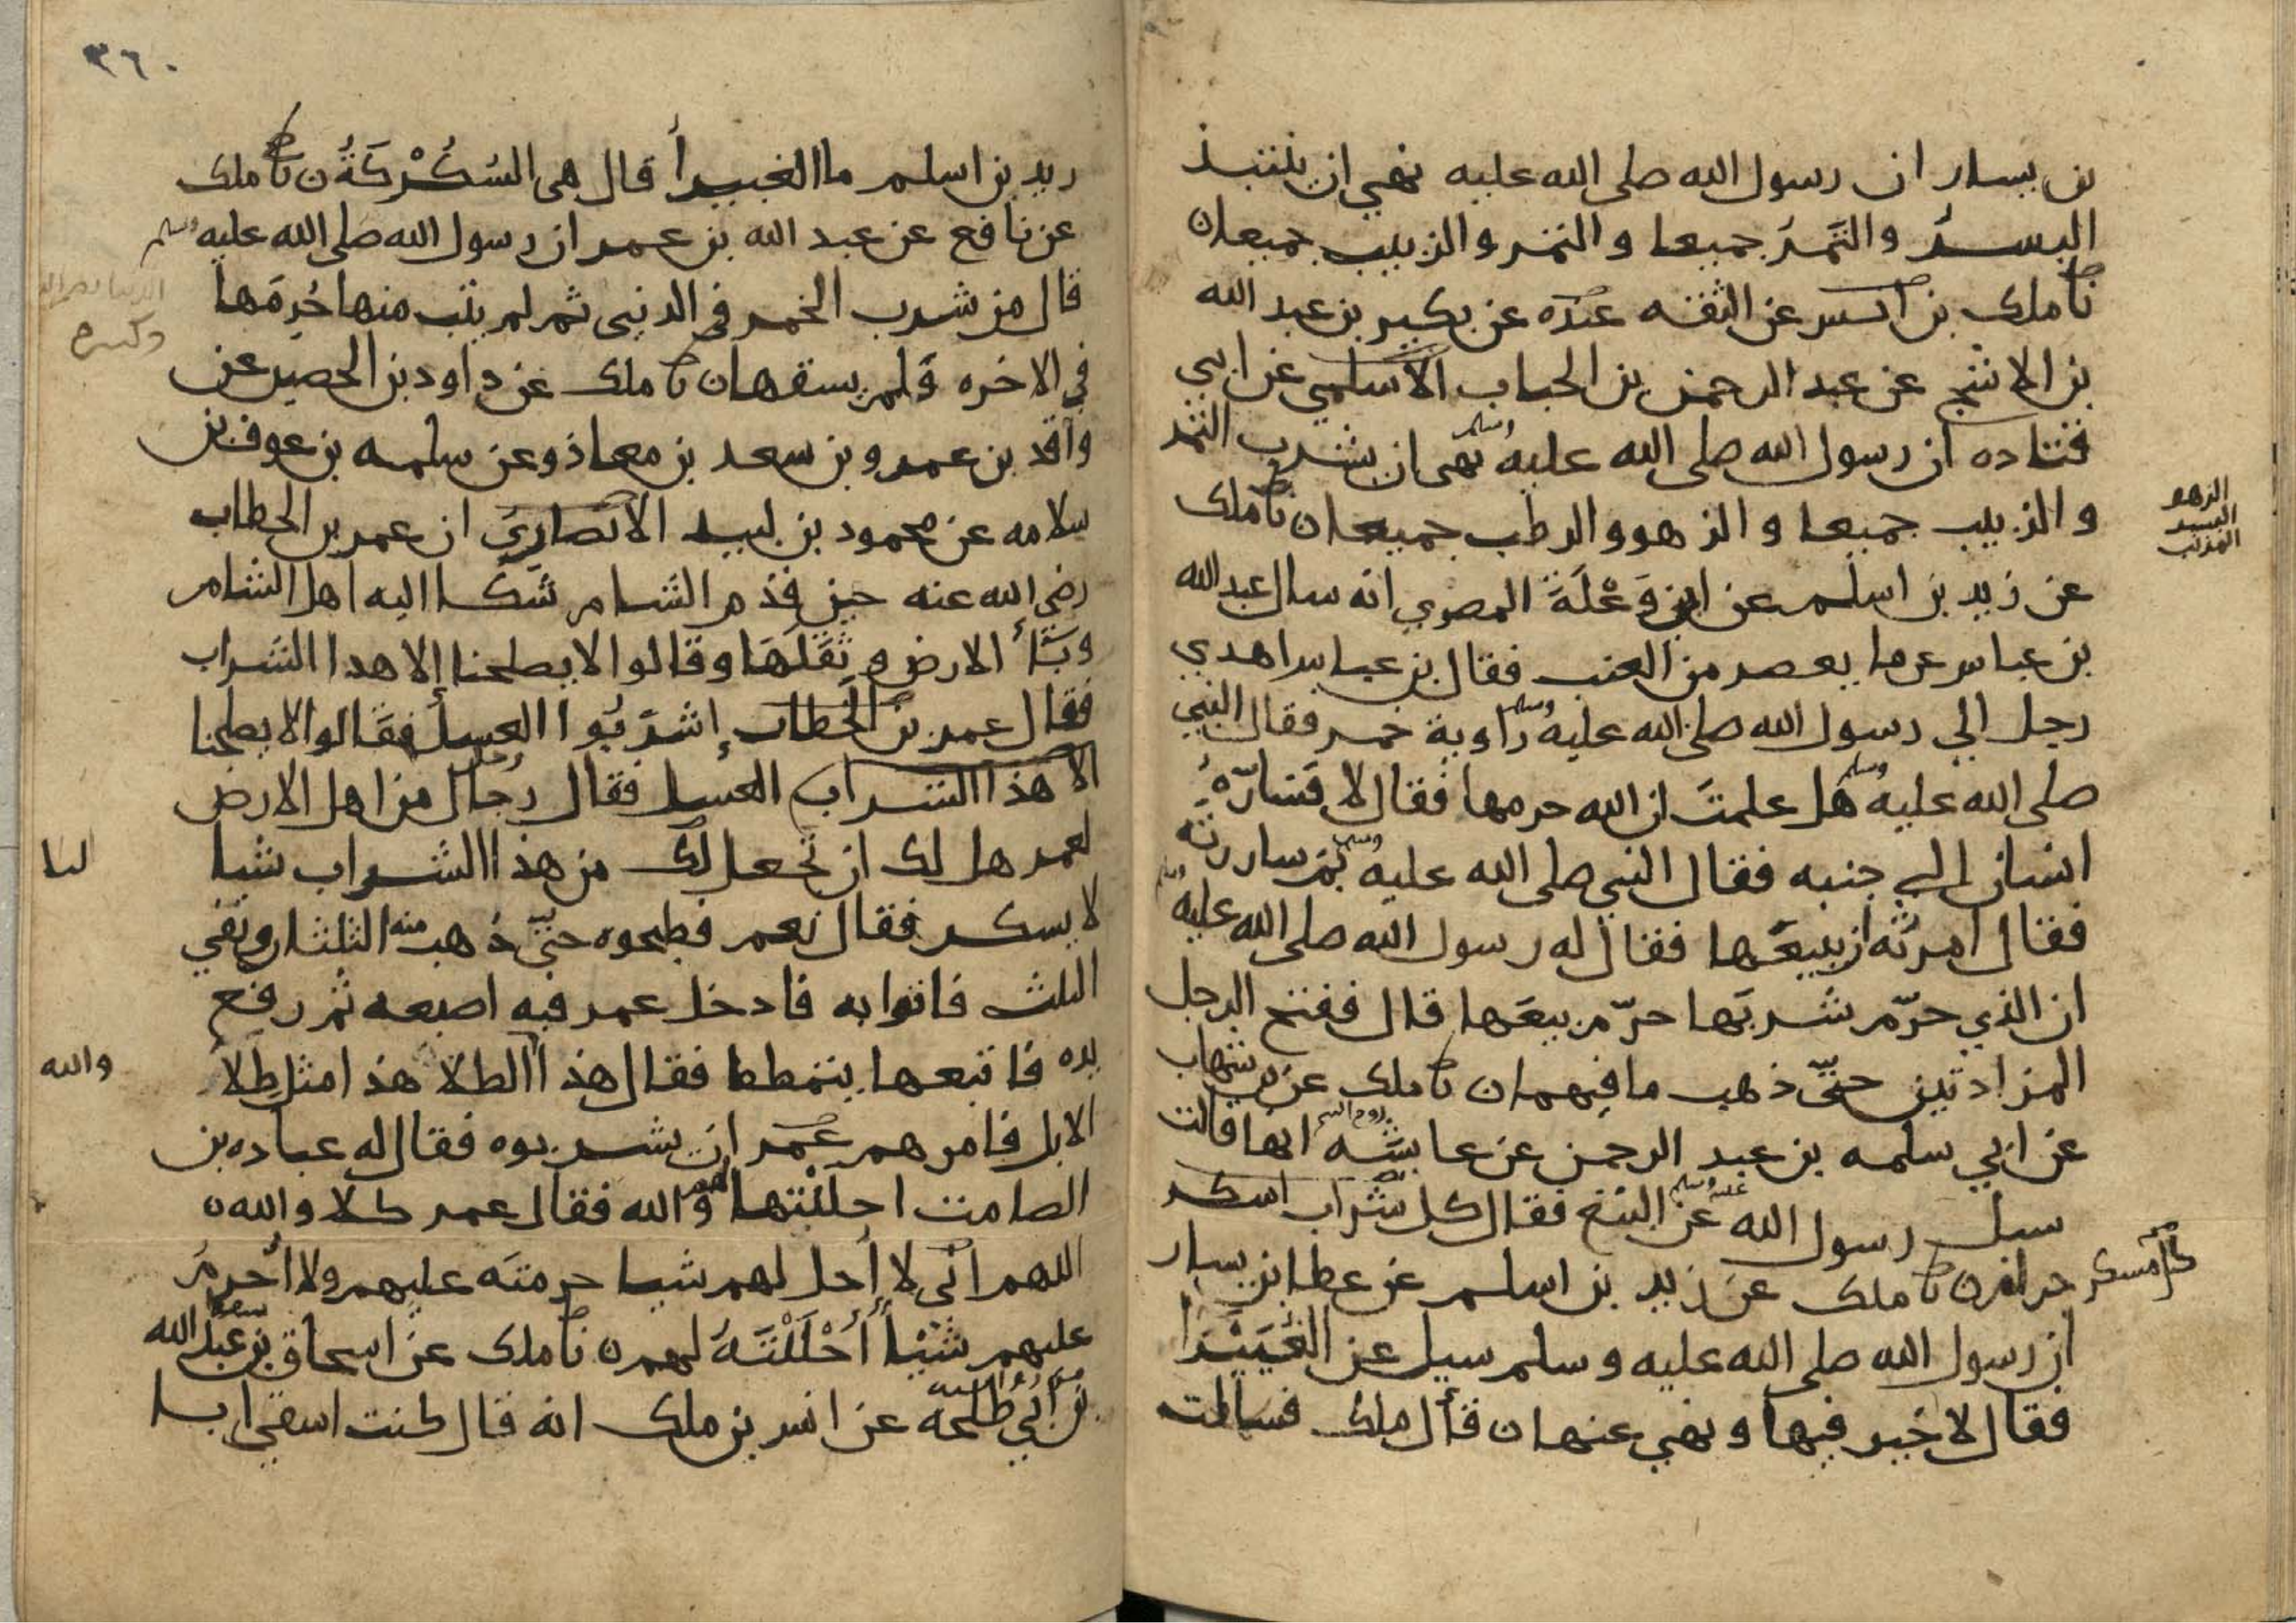 بن يسار ان رسول الله صلى الله عليه نهي ان ينتبذ
البسرُ والتَمرُ جميعا والتمر والزبيب جميعا ن
نا ملك بن انس عن الثقه عنده عن بكير بن عبد الله
بن الاشج عن عبد الرحمن بن الحباب الاسلمي عن ابي
قتاده ان رسول الله صلى الله عليه وسلم نهى ان يشرب التمر
والزبيب جميعا والزهو والرطب جميعا ن نا ملك
الزهو
البسر
عن زيد بن اسلم عن ابن وَعْلَةَ المصري انه سال عبد الله
بن عباس عن ما يعصر من العنب فقال بن عباس اهدي
رجل الي رسول الله صلى الله عليه وسلم راوية خمر فقال النبي
صلى الله عليه وسلم هل علمتَ ان الله حرمها فقال لا فَسَارّهُ
انسان الي جنبه فقال النبي صلى الله عليه وسلم بم ساررته
فقال امرتُه ان يبيعَها فقال له رسول الله صلى الله عليه وسلم
ان الذي حرّم شربَها حرّم بيعَها قال ففتح الرجل
المزادتين حتّى ذهب ما فيهما ن نا ملك عن بن شهاب
عن ابي سلمه بن عبد الرحمن عن عايشَه زوج النبي انها قالت
سيل رسول الله عليه وسلم عن البتع فقال كل شراب اسكر
حرام ن نا ملك عن زيد بن اسلم عن عطا بن يسار
كل مسكر
ان رسول الله صلى الله عليه وسلم سيل عن الغُبَيْرَا
فقال لا خير فيها ونهي عنها ن قال ملك فسالت
٣٦٠
زيد بن اسلم ما الغبيرا قال هى السُكُرْكَةُ ن نا ملك
عن نافع عن عبد الله بن عمر ان رسول الله صلى الله عليه وسلم
قال من شرب الخمر في الدنيى ثم لم يتب منها حُرِمَها
في الاخره ولم يسقها ن نا ملك عن داود بن الحصين عن
واقد بن عمرو بن سعد بن معاذ وعن سلمه بن عوف بن
سلامه عن محمود بن لبيد الانصاري ان عمر بن الخطاب
رضي الله عنه حين قَدِم الشام شَكا اليه اهل الشام
وبَأَ الارض وثِقَلَهَا وقالوا لا يصلحنا إلا هدا الشراب
فقال عمر بن الخطاب إشرَبُوا العسل فقالوا لا يصلحنا
الا هذا الشراب العسل فقال رجال من اهل الارض
رجل
لعمر هل لك ان نجعل لك من هذا الشراب شيا
لنا
لا يسكر فقال نعم فطبخوه حتّى ذهب منه الثلثان وبقي
الثلث فاتوا به فادخل عمر فيه اصبعه ثم رفع
يده فاتبعها يتمطط فقال هذا الطلا هذا مثل طِلا
والله
الابل فامرهم عمر ان يشربوه فقال له عباده بن
الصامت احللتها لهم والله فقال عمر كلا والله ن
اللهم اني لا أُحل لهم شيا حرمتَه عليهم ولا أُحرمُ
عليهم شيْأً أَحْلَلْتَهُ لهم ن نا ملك عن اسحاق بن عبد الله
بن أبي طلحه عن انس بن ملك انه قال كنت اسقي ابا